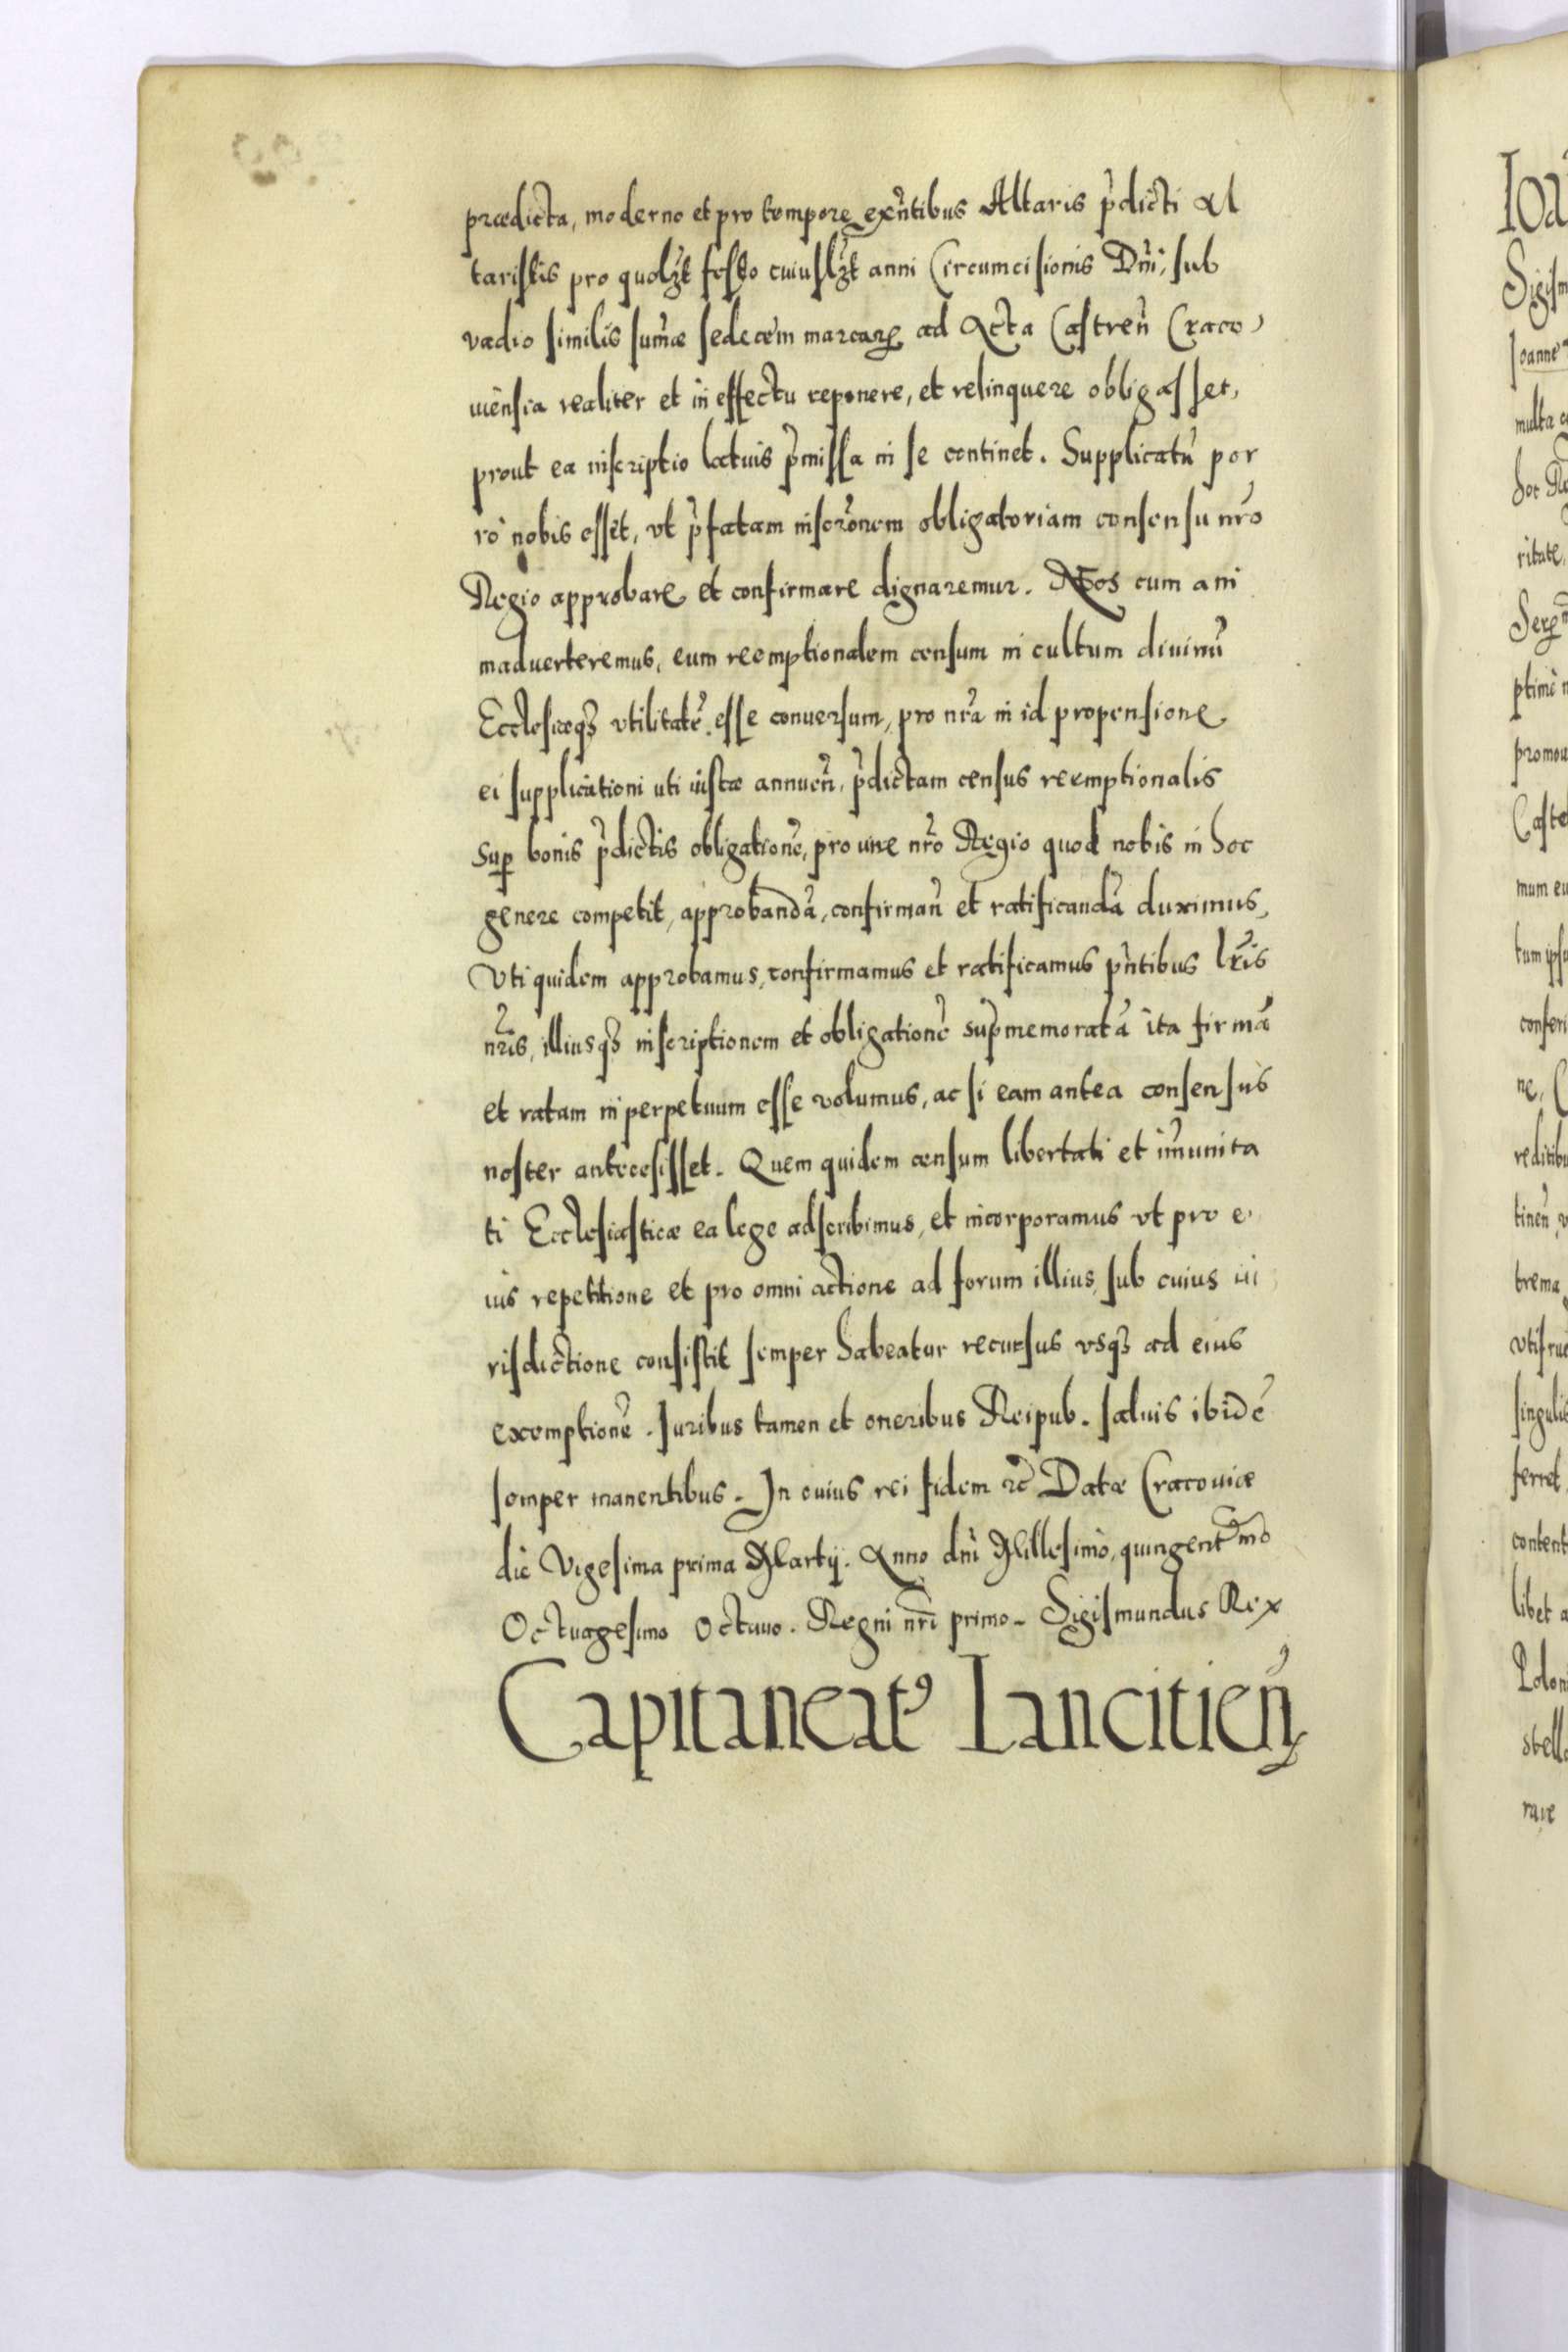 prædicta, moderno et pro tempore exñtibus Altaris p̃dicti Al
taristis pro quolꝫt festo cuiuslꝫt anni Circumcisionis Dñi, sub
vadio similis sum̃æ sedecem marcarꝝ ad Acta Castreñ Craco
uiensia realiter et in effectu reponere, et relinquere obligasset,
prout ea inscriptio latius p̃missa in se continet. Supplicatũ por
ro nobis esset, vt p̃fatam inscr̃onem obligatoriam consensu nr̃o
Regio approbare et confirmare dignaremur. Nos cum ani
maduerteremus, eum reemptionalem censum in cultum diuinũ
Ecclesiæqꝫ vtilitatẽ esse conuersum, pro nr̃a in id propensione
ei supplicationi uti iustæ annueñ, p̃dictam census reemptionalis
suꝑ bonis p̃dictis obligationẽ, pro iure nr̃o Regio quod nobis in hoc
genere competit, approbandã, confirmañ et ratificandã duximus,
Vti quidem approbamus, confirmamus et ratificamus p̃ntibus lr̃is
nr̃is, illiusqꝫ inscriptionem et obligationẽ sup̃memoratã ita firmã
et ratam in perpetuum esse volumus, ac si eam antea consensus
noster antecesisset. Quem quidem censum libertati et im̃unita
ti Ecclesiasticæ ea lege adscribimus, et incorporamus vt pro e
ius repetitione et pro omni actione ad forum illius, sub cuius iu
risdictione consistit semper habeatur recursus vsqꝫ ad eius
exemptionẽ. Iuribus tamen et oneribus Reipub. saluis ibidẽ
semper manentibus. In cuius rei fidem ꝛc̃ Datæ Cracouiæ
die Vigesima prima Martij. Anno dñi Millesimo, quingent̃mo
Octuagesimo Octauo. Regni nr̃i primo. Sigismundus Rex
Capitaneatꝰ Lancitieñ